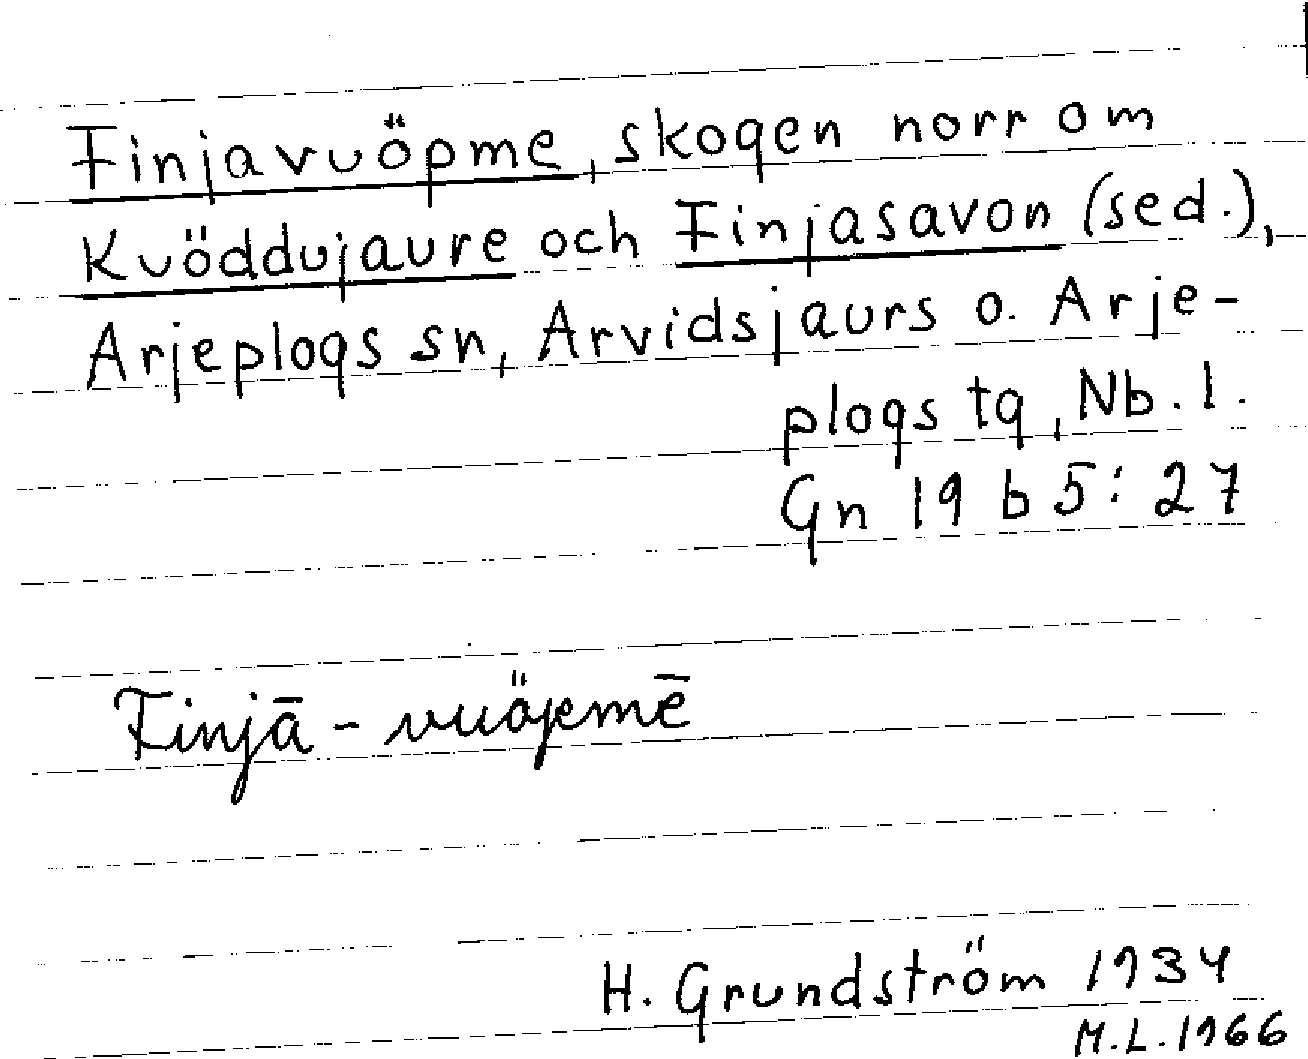 Finjavuöpme, skogen norr om
Kuöddujaure och Finjasavon (sed.),
Arjeplogs sn, Arvidsjaurs o. Arje-
plogs tg, Nb. l.
Gn 19 b 5:27
Finjā - vuöpmē
H. Grundström 1934
M.L. 1966